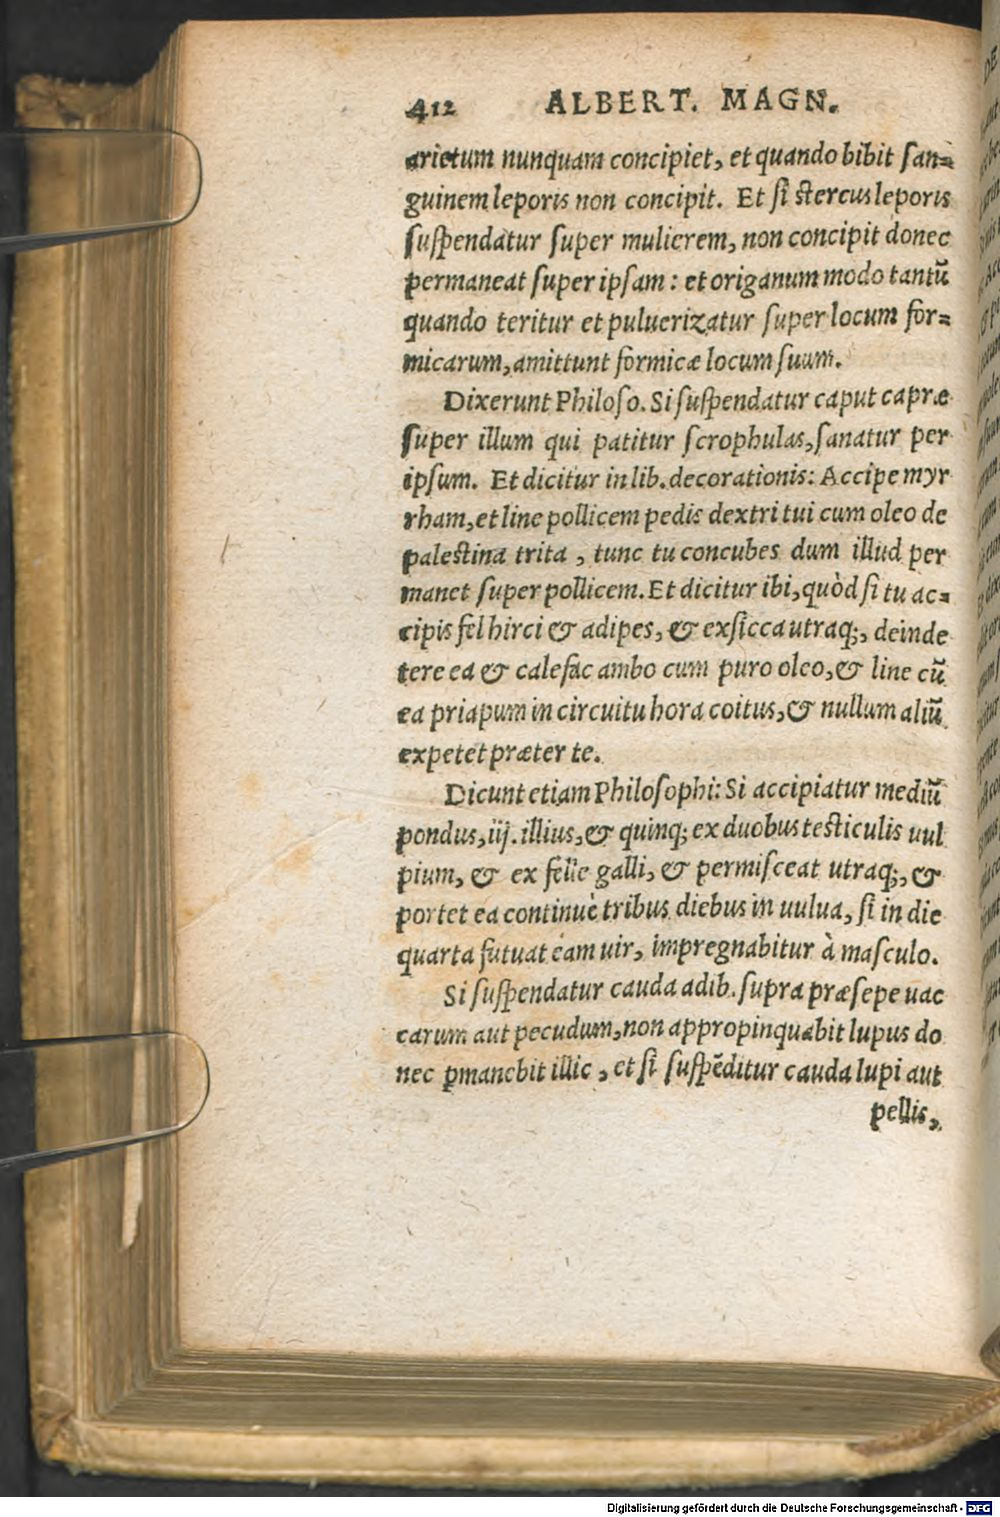 412 ALBERT. MAGN.
arietum nunquam concipiet, et quando bibit ſan⸗
guinem leporis non concipit. Et ſi ſtercus leporis
ſuſpendatur ſuper mulierem, non concipit donec
permaneat ſuper ipſam : et origanum modo tantũ
quando teritur et puluerizatur ſuper locum for⸗
micarum, amittunt formicæ locum ſuum.
Dixerunt Philoſo. Si ſuſpendatur caput capræ
ſuper illum qui patitur ſcrophulas, ſanatur per
ipſum. Et dicitur in lib. decorationis: Accipe myr
rham, et line pollicem pedis dextri tui cum oleo de
paleſtina trita , tunc tu concubes dum illud per
manet ſuper pollicem. Et dicitur ibi, quòd ſi tu ac⸗
cipis fel hirci & adipes, & exſicca utraq;, deinde
tere ea & calefac ambo cum puro oleo, & line cũ
ea priapum in circuitu hora coitus, & nullum aliũ
expetet præter te.
Dicunt etiam Philoſophi: Si accipiatur mediũ
pondus, iij. illius, & quinq; ex duobus teſticulis uul
pium, & ex felle galli, & permiſceat utraq;, &
portet ea continuè tribus diebus in uulua, ſi in die
quarta futuat eam uir, impregnabitur à maſculo.
Si ſuſpendatur cauda adib. ſupra præſepe uac
carum aut pecudum, non appropinquabit lupus do
nec ꝑmanebit illic , et ſi ſuſpẽditur cauda lupi aut
pellis,
Digitalisierung gefördert durch die Deutsche Forschungsgemeinschaft - DFG